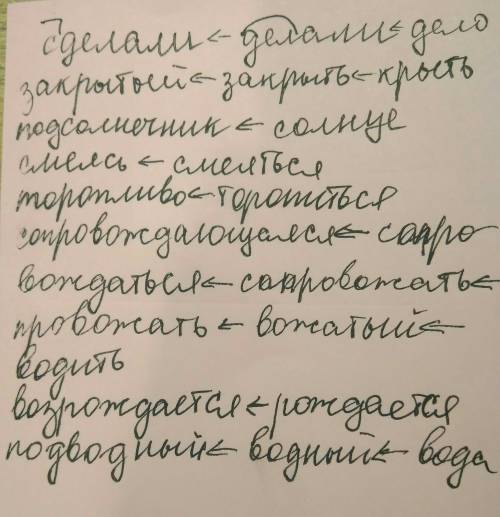 сделали ← делали ← дело
закрытый ← закрыть ← крыть
подсолнечник ← солнце
смеясь ← смеяться
торопливо ← торопиться
сопровождающаяся ← сопро
вождаться ← сопровожать ←
провожать ← вожатый ←
водить
возрождается ← рождается
подводный ← водный ← вода